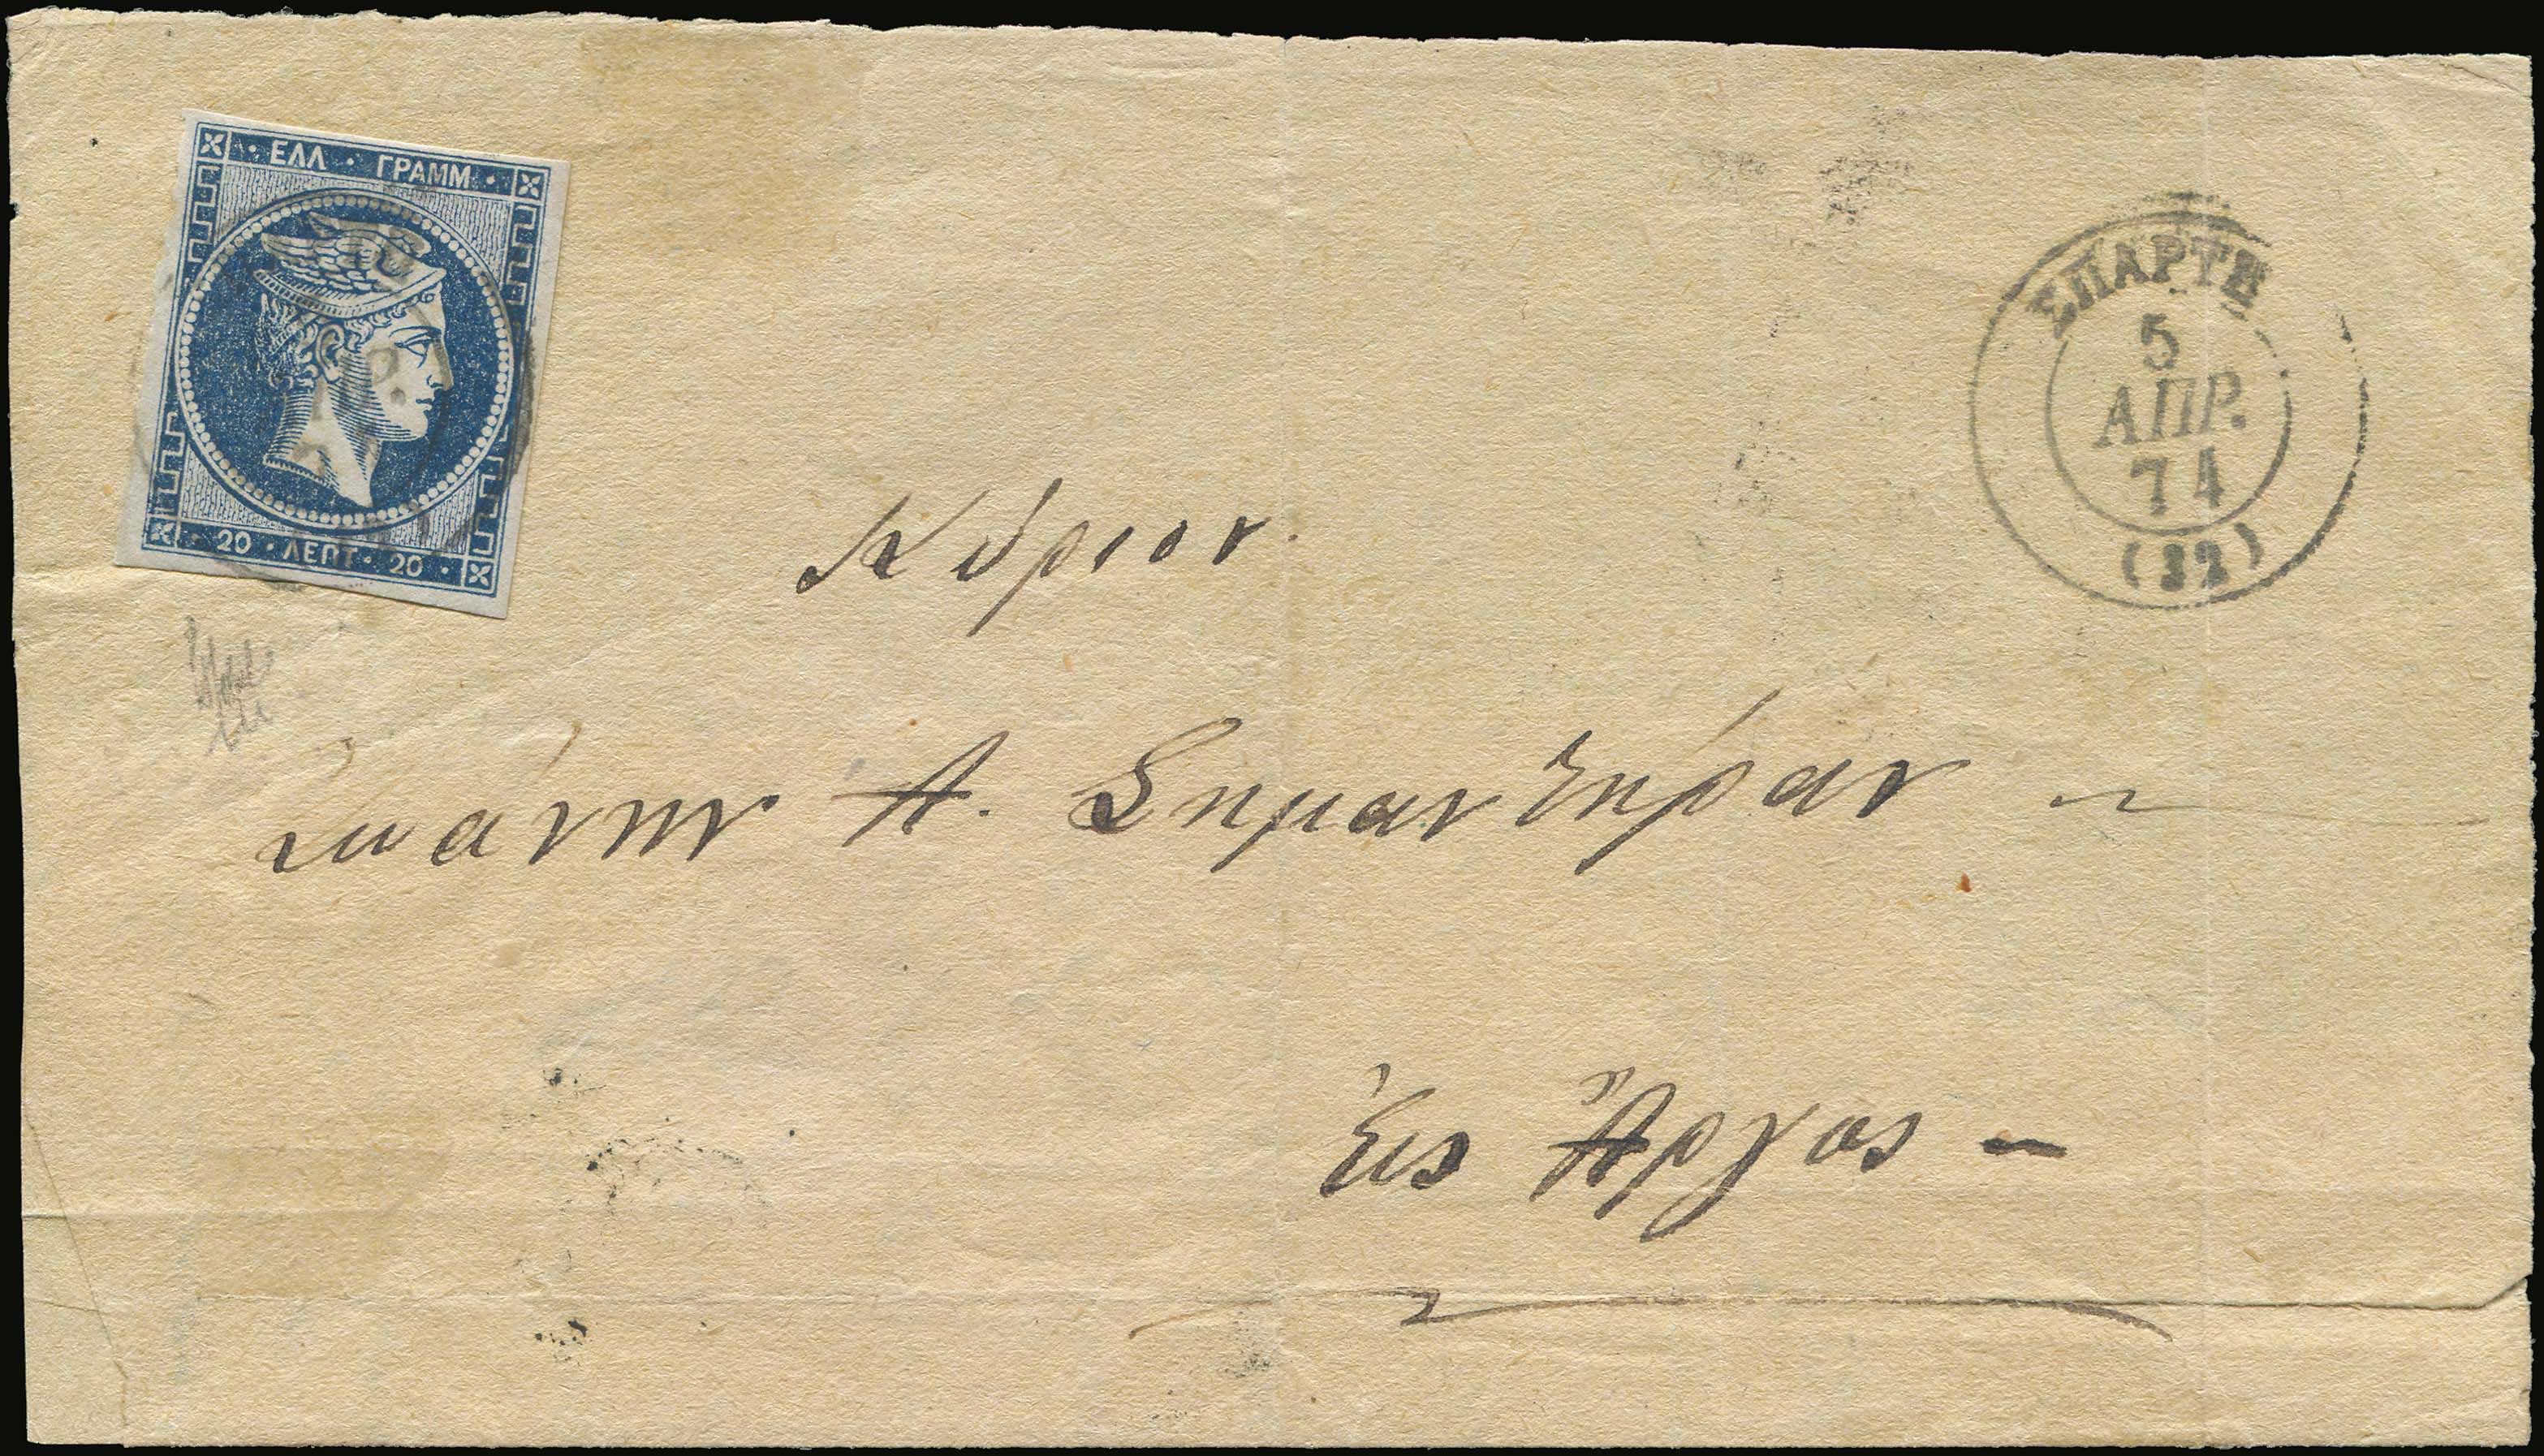 · ΕΛΛ · ΓΡΑΜΜ ·
· 20 · ΛΕΠΤ · 20 ·
ΣΠΑΡΤΗ
5
ΑΠΡ.
74
(32)
Κύριον
Ἰωάννην Α. Σημαντήραν
Εἰς Ἄργος —